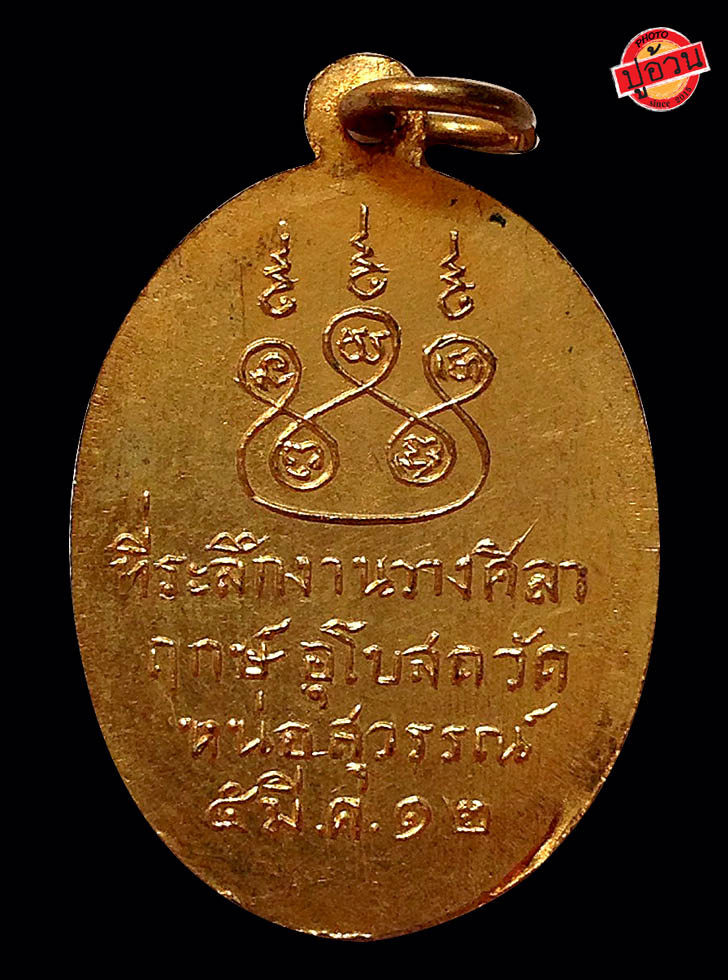 PHOTO
ปูอ้วน
since 2015
ที่ระลึกงานวางศิลา
ฤกษ์ อุโบสถวัด
หน่อสุวรรณ์
๕ มี.ค. ๑๒